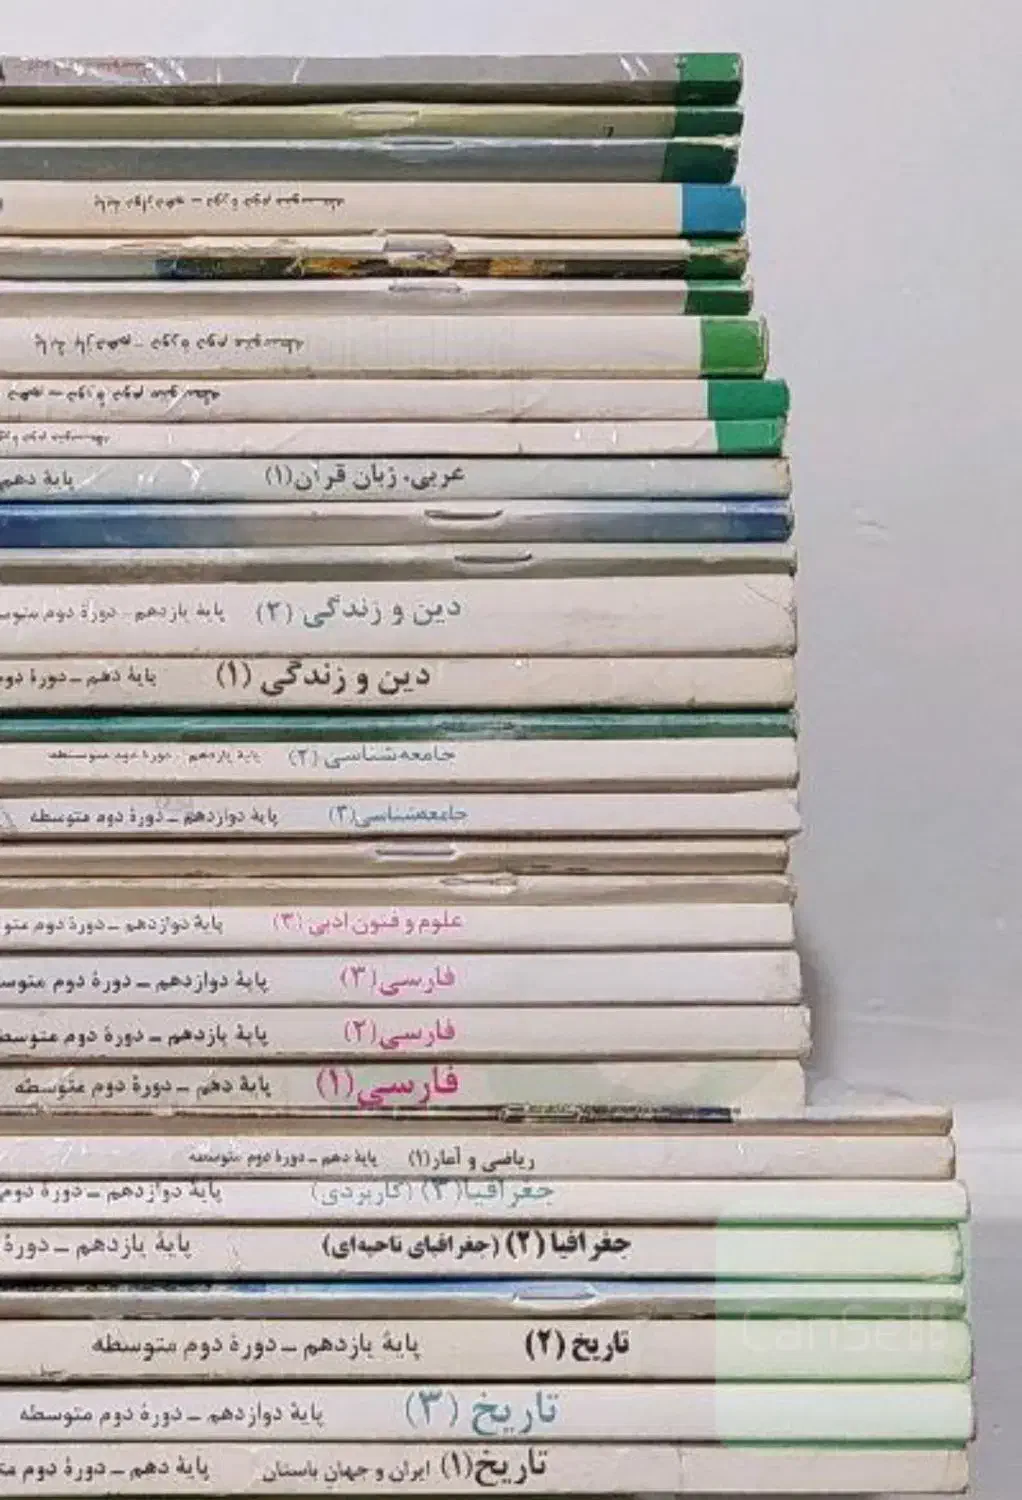 پایهٔ دوازدهم - دورهٔ دوم متوسطه
پایهٔ یازدهم - دورهٔ دوم متوسطه
دهم - دورهٔ دوم متوسطه
متوسطه
عربی، زبان قرآن (۱) پایهٔ دهم
دین و زندگی (۲) پایهٔ یازدهم - دورهٔ دوم
دین و زندگی (۱) پایهٔ دهم - دورهٔ دوم
جامعه‌شناسی (۲) پایهٔ یازدهم - دورهٔ دوم متوسطه
جامعه‌شناسی (۳) پایهٔ دوازدهم - دورهٔ دوم متوسطه
علوم و فنون ادبی (۳) پایهٔ دوازدهم - دورهٔ دوم
فارسی (۳) پایهٔ دوازدهم - دورهٔ دوم
فارسی (۲) پایهٔ یازدهم - دورهٔ دوم
فارسی (۱) پایهٔ دهم - دورهٔ دوم متوسطه
ریاضی و آمار (۱) پایهٔ دهم - دورهٔ دوم متوسطه
جغرافیا (۳) (کاربردی) پایهٔ دوازدهم - دورهٔ دوم
جغرافیا (۲) (جغرافیای ناحیه‌ای) پایهٔ یازدهم - دورهٔ
تاریخ (۲) پایهٔ یازدهم - دورهٔ دوم متوسطه
تاریخ (۳) پایهٔ دوازدهم - دورهٔ دوم متوسطه
تاریخ (۱) ایران و جهان باستان پایهٔ دهم - دورهٔ دوم